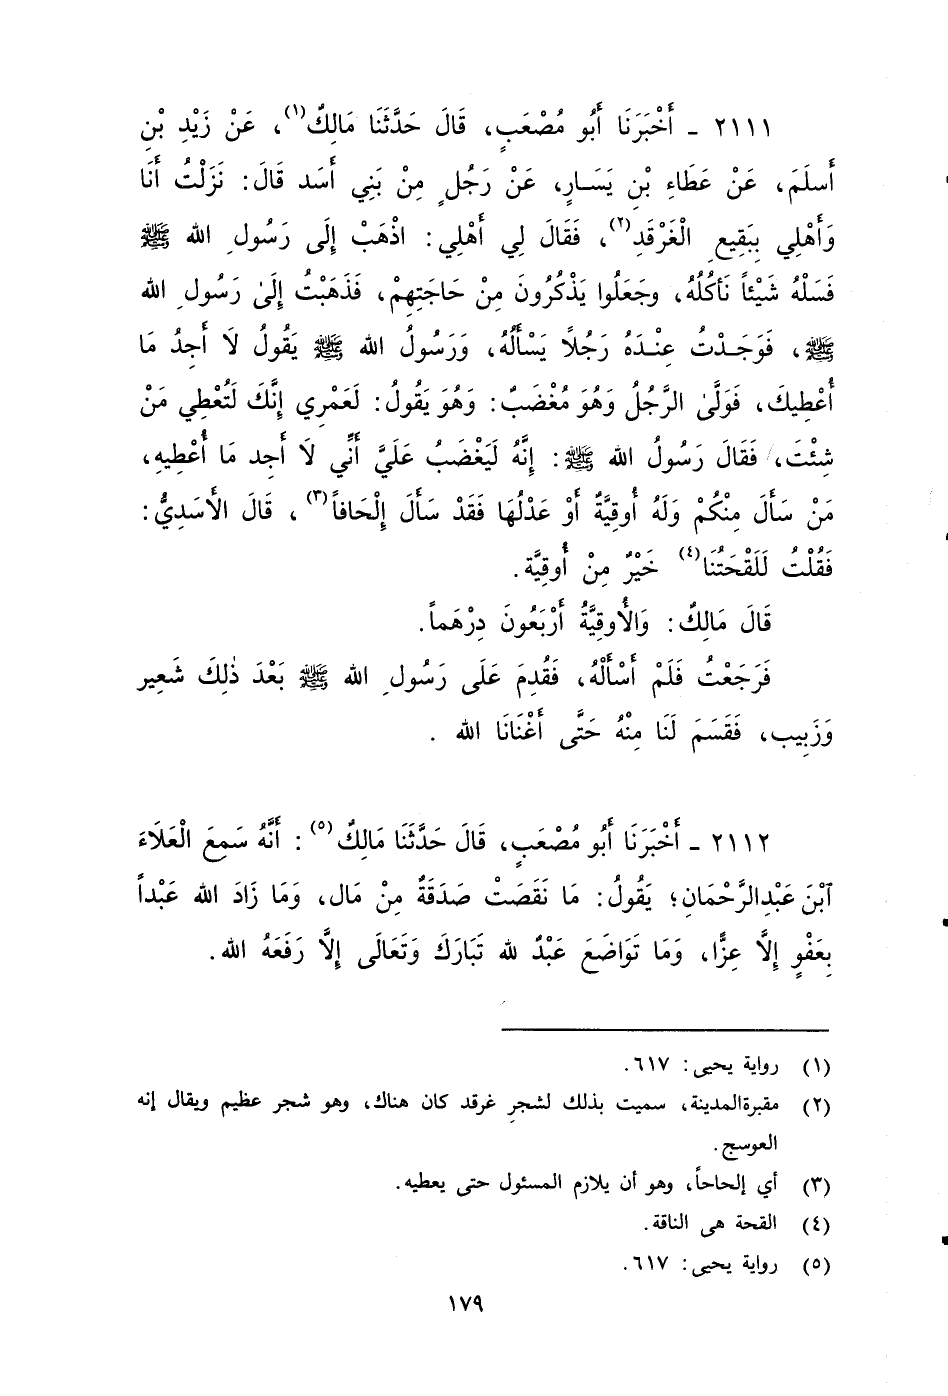 ٢١١١ ـ أَخْبَرَنَا أَبُو مُصْعَبٍ، قَالَ حَدَّثَنَا مَالِكٌ(١)، عَنْ زَيْدِ بْنِ
أَسلَمَ، عَنْ عَطَاءِ بْنِ يَسَارٍ، عَنْ رَجُلٍ مِنْ بَنِي أَسَد قَالَ: نَزَلْتُ أَنَا
وَأَهْلِي بِبَقِيعِ الْغَرْقَدِ(٢)، فَقَالَ لِي أَهْلِي: اذْهَبْ إِلَى رَسُولِ الله ﷺ
فَسَلْهُ شَيْئاً نَأكُلُهُ، وجَعَلُوا يَذْكُرُونَ مِنْ حَاجَتِهِمْ، فَذَهَبْتُ إِلَىٰ رَسُولِ الله
ﷺ، فَوَجَدْتُ عِنْدَهُ رَجُلاً يَسْأَلُهُ، وَرَسُولُ الله ﷺ يَقُولُ لَا أَجِدُ مَا
أُعْطِيكَ، فَوَلَّىٰ الرَّجُلُ وَهُوَ مُغْضَبٌ: وَهُوَ يَقُولُ: لَعَمْرِي إِنَّكَ لَتُعْطِي مَنْ
شِئْتَ، فَقَالَ رَسُولُ الله ﷺ: إِنَّهُ لَيَغْضَبُ عَلَيَّ أَنِّي لَا أَجِد مَا أُعْطِيهِ،
مَنْ سَأَلَ مِنْكُمْ وَلَهُ أُوقِيَّةٌ أَوْ عَدْلُهَا فَقَدْ سَأَلَ إِلْحَافاً(٣)، قَالَ الأَسَدِيُّ:
فَقُلْتُ لَلَقْحَتُنَا(٤) خَيْرٌ مِنْ أُوقِيَّة.
قَالَ مَالِكٌ: وَالأُوقِيَّةُ أَرْبَعُونَ دِرْهَماً.
فَرَجَعْتُ فَلَمْ أَسْأَلْهُ، فَقُدِمَ عَلَى رَسُولِ الله ﷺ بَعْدَ ذٰلِكَ شَعِير
وَزَبِيب، فَقَسَمَ لَنَا مِنْهُ حَتَّى أَغْنَانَا الله .
٢١١٢ ـ أَخْبَرَنَا أَبُو مُصْعَبٍ، قَالَ حَدَّثَنَا مَالِكٌ(٥): أَنَّهُ سَمِعَ الْعَلَاءَ
ٱبْنَ عَبْدِالرَّحْمَانِ؛ يَقُولُ: مَا نَقَصَتْ صَدَقَةٌ مِنْ مَال، وَمَا زَادَ الله عَبْداً
بِعَفْوٍ إِلَّا عِزًّا، وَمَا تَوَاضَعَ عَبْدٌ لله تَبَارَكَ وَتَعَالَى إِلَّا رَفَعَهُ الله.
(١) رواية يحيى: ٦١٧.
(٢) مقبرةالمدينة، سميت بذلك لشجرِ غرقد كان هناك، وهو شجر عظيم ويقال إنه
العوسج.
(٣) أي إلحاحاً، وهو أن يلازم المسئول حتى يعطيه.
(٤) القحة هى الناقة.
(٥) رواية يحيى: ٦١٧.
١٧٩